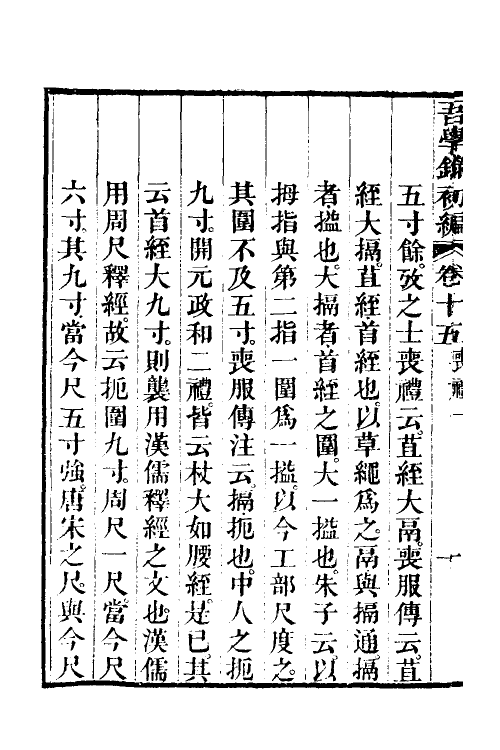 吾學錄初編 卷十五 喪禮一
五寸餘攷之士喪禮云苴絰大鬲喪服傳云苴
絰大搹苴絰首絰也以草繩爲之鬲與搹通搹
者搤也大搹者首絰之圍大一搤也朱子云以
拇指與第二指一圍爲一搤以今工部尺度之
其圍不及五寸喪服傳注云搹扼也中人之扼
九寸開元政和二禮皆云杖大如腰絰是已其
云首絰大九寸則襲用漢儒釋經之文也漢儒
用周尺釋經故云扼圍九寸周尺一尺當今尺
六寸其九寸當今尺五寸強唐宋之尺與今尺